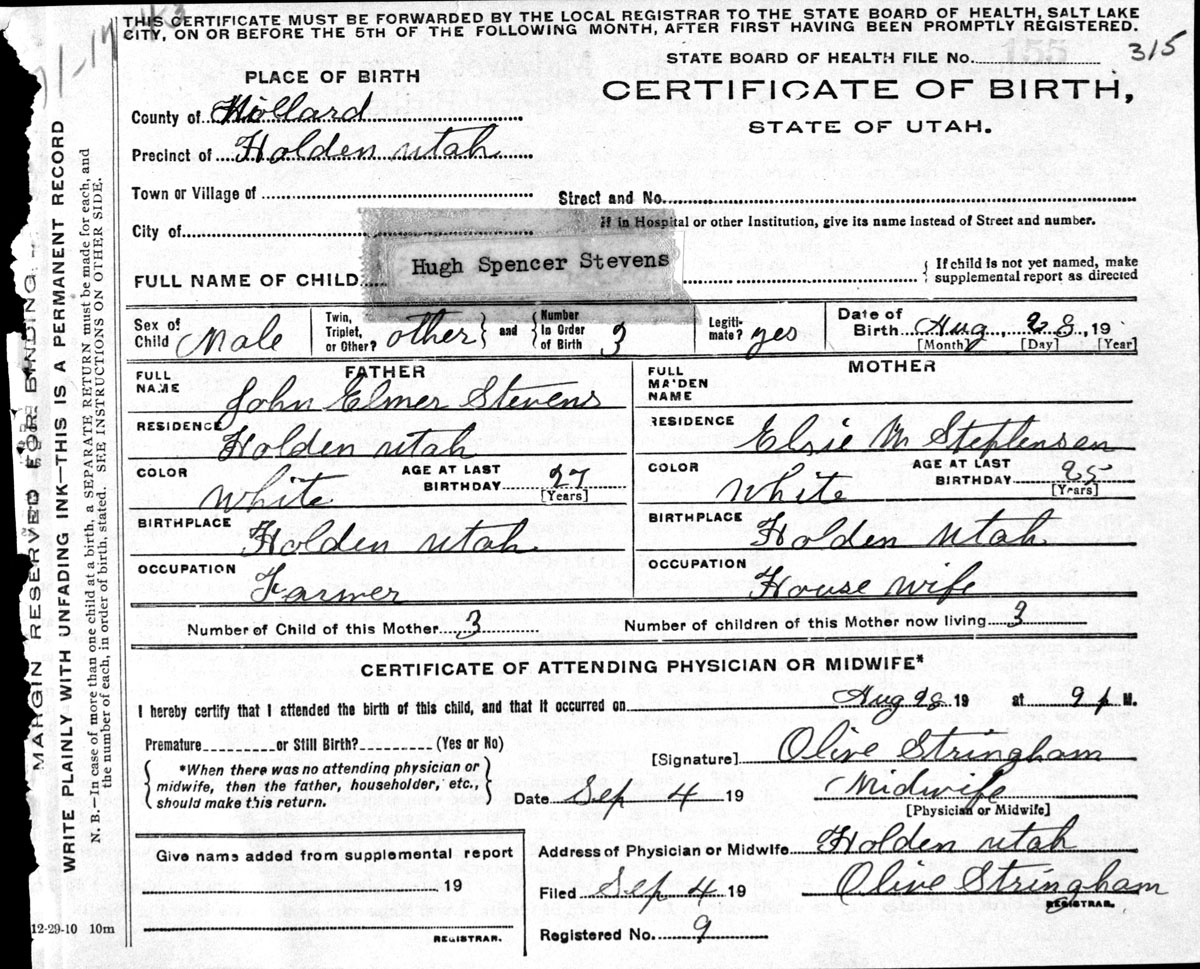 THIS CERTIFICATE MUST BE FORWARDED BY THE LOCAL REGISTRAR TO THE STATE BOARD OF HEALTH, SALT LAKE
CITY, ON OR BEFORE THE 5TH OF THE FOLLOWING MONTH, AFTER FIRST HAVING BEEN PROMPTLY REGISTERED.
315
STATE BOARD OF HEALTH FILE No.
PLACE OF BIRTH
CERTIFICATE OF BIRTH,
STATE OF UTAH.
County of Millard
Precinct of Holden Utah
Town or Village of
Street and No.
City of
If in Hospital or other Institution, give its name instead of Street and number.
FULL NAME OF CHILD Hugh Spencer Stevens
{ If child is not yet named, make
supplemental report as directed
Sex of Child Male
Twin, Triplet, or Other? other } and { Number In Order of Birth 3
Legiti- mate? yes
Date of Birth Aug, 28, 19
[Month] [Day] [Year]
FATHER
FULL NAME John Elmer Stevens
RESIDENCE Holden Utah
COLOR White AGE AT LAST BIRTHDAY 27 [Years]
BIRTHPLACE Holden Utah
OCCUPATION Farmer
MOTHER
FULL MAIDEN NAME
RESIDENCE Elsie M Stephensen
COLOR White AGE AT LAST BIRTHDAY 25 [Years]
BIRTHPLACE Holden Utah
OCCUPATION House wife
Number of Child of this Mother 3 Number of children of this Mother now living 3
CERTIFICATE OF ATTENDING PHYSICIAN OR MIDWIFE*
I hereby certify that I attended the birth of this child, and that it occurred on Aug 28 19 at 9 p M.
Premature or Still Birth? (Yes or No)
{ *When there was no attending physician or
midwife, then the father, householder, etc.,
should make this return. }
[Signature] Olive Stringham
Date Sep 4 19 Midwife
[Physician or Midwife]
Give name added from supplemental report
19
REGISTRAR.
Address of Physician or Midwife Holden Utah
Filed Sep 4 19 Olive Stringham
REGISTRAR.
Registered No. 9
12-29-10 10m
MARGIN RESERVED FOR BINDING
WRITE PLAINLY WITH UNFADING INK—THIS IS A PERMANENT RECORD
N. B.—In case of more than one child at a birth, a SEPARATE RETURN must be made for each, and
the number of each, in order of birth, stated. SEE INSTRUCTIONS ON OTHER SIDE.